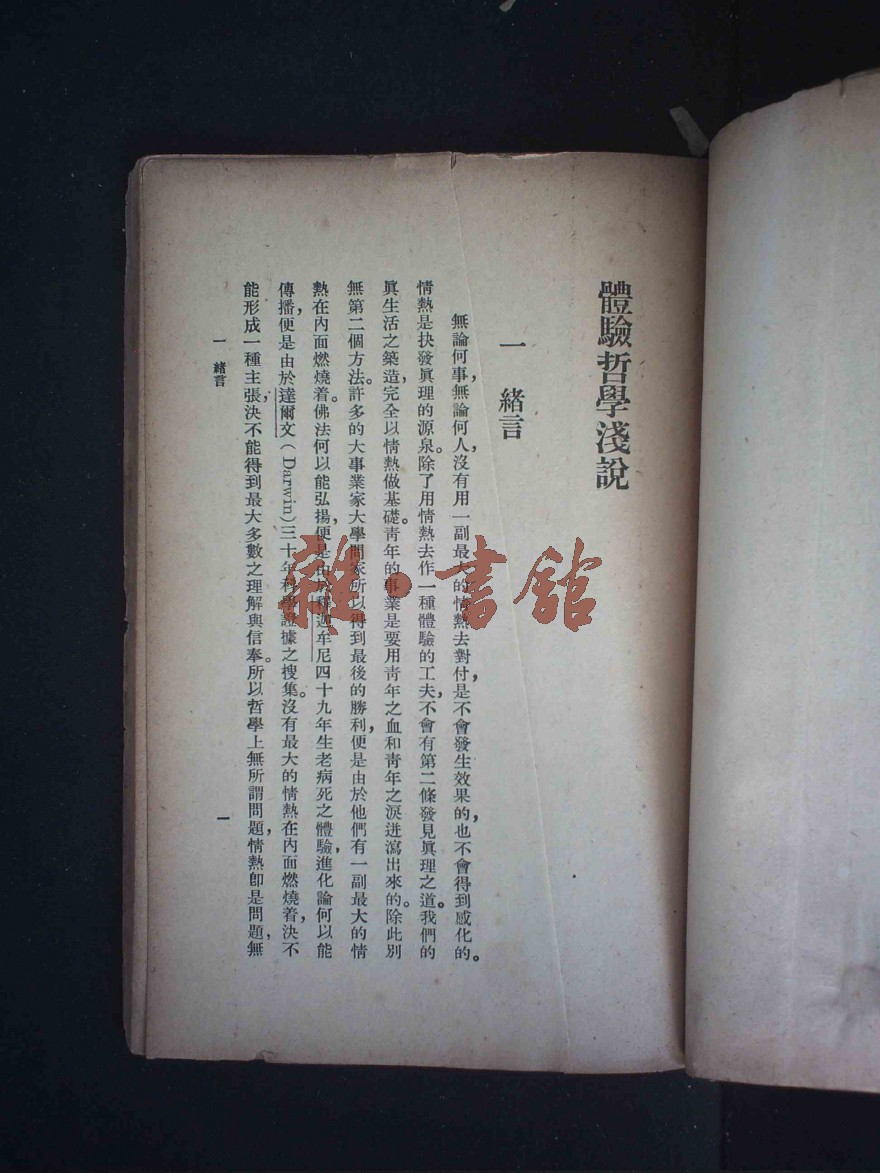 體驗哲學淺說
一　緒言
無論何事，無論何人，沒有用一副最大的情熱去對付，是不會發生效果的，也不會得到感化的。
情熱是抉發眞理的源泉。除了用情熱去作一種體驗的工夫，不會有第二條發見眞理之道。我們的
眞生活之築造，完全以情熱做基礎。靑年的事業是要用靑年之血和靑年之淚迸瀉出來的。除此別
無第二個方法。許多的大事業家大學問家所以得到最後的勝利，便是由於他們有一副最大的情
熱在內面燃燒着。佛法何以能弘揚，便是由於釋迦牟尼四十九年生老病死之體驗，進化論何以能
傳播，便是由於達爾文（Darwin）三十年科學證據之搜集。沒有最大的情熱在內面燃燒着，決不
能形成一種主張，決不能得到最大多數之理解與信奉。所以哲學上無所謂問題，情熱卽是問題，無
一　緒言
一
雜·書館